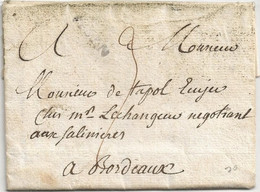 A Monsieur
Monsieur de Sapol Ecuyer
chés mr. Lechangeur negotiant
aux salinieres
a Bordeaux